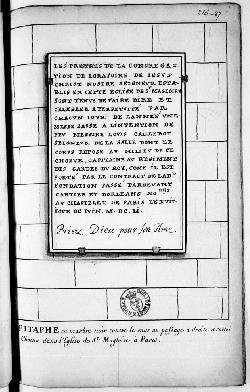 LES PRESTRES DE LA CONGREGA
TION DE LORATOIRE DE IESVS
CHRIST NOSTRE SEIGNEVR ESTA
BLIS EN CETTE EGLISE DE St MAGLOIRE
SONT TENVS DE FAIRE DIRE ET
CELEBRER A PERPETVITÉ PAR
CHACVN IOVR DE LANNEE VNE
MESSE BASSE A LINTENTION DE
FEV MESSIRE LOVIS
SEIGNEVR DE LA SALLE DONT LE
CORPS REPOSE AU MILIEU DE CE
CHOEVR, CAPITAINE AV REGIMENT
DES GARDES DV ROY, COME IL EST
PORTÉ PAR LE CONTRACT DE LAD.
FONDATION PASSÉ PARDEVANT
CARTIER ET DORLEANS
AV CHASTELET DE PARIS LE
IOVR DE IVIN. M. DC. LI.
Priez Dieu pour son Ame.
EPITAPHE en marbre noir contre le mur au passage a droite
Choeur dans l'Eglise de St. Magloire à Paris.